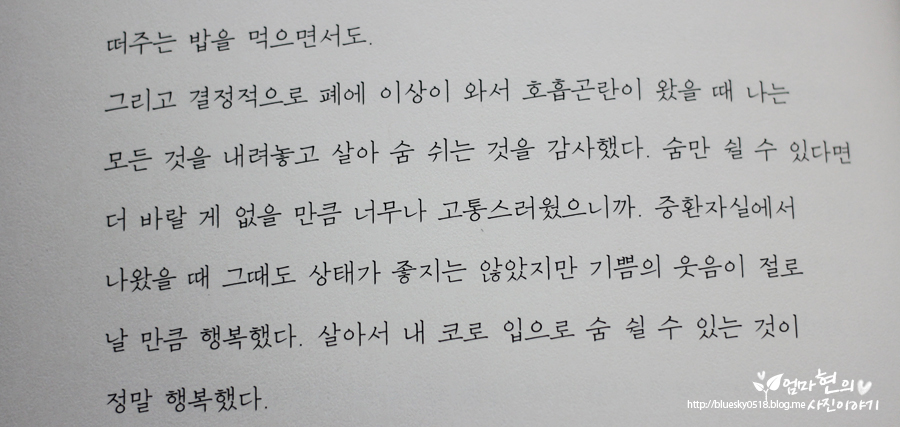 떠주는 밥을 먹으면서도.
그리고 결정적으로 폐에 이상이 와서 호흡곤란이 왔을 때 나는
모든 것을 내려놓고 살아 숨 쉬는 것을 감사했다. 숨만 쉴 수 있다면
더 바랄 게 없을 만큼 너무나 고통스러웠으니까. 중환자실에서
나왔을 때 그때도 상태가 좋지는 않았지만 기쁨의 웃음이 절로
날 만큼 행복했다. 살아서 내 코로 입으로 숨 쉴 수 있는 것이
정말 행복했다.
엄마현의
http://bluesky0518.blog.me 사진이야기